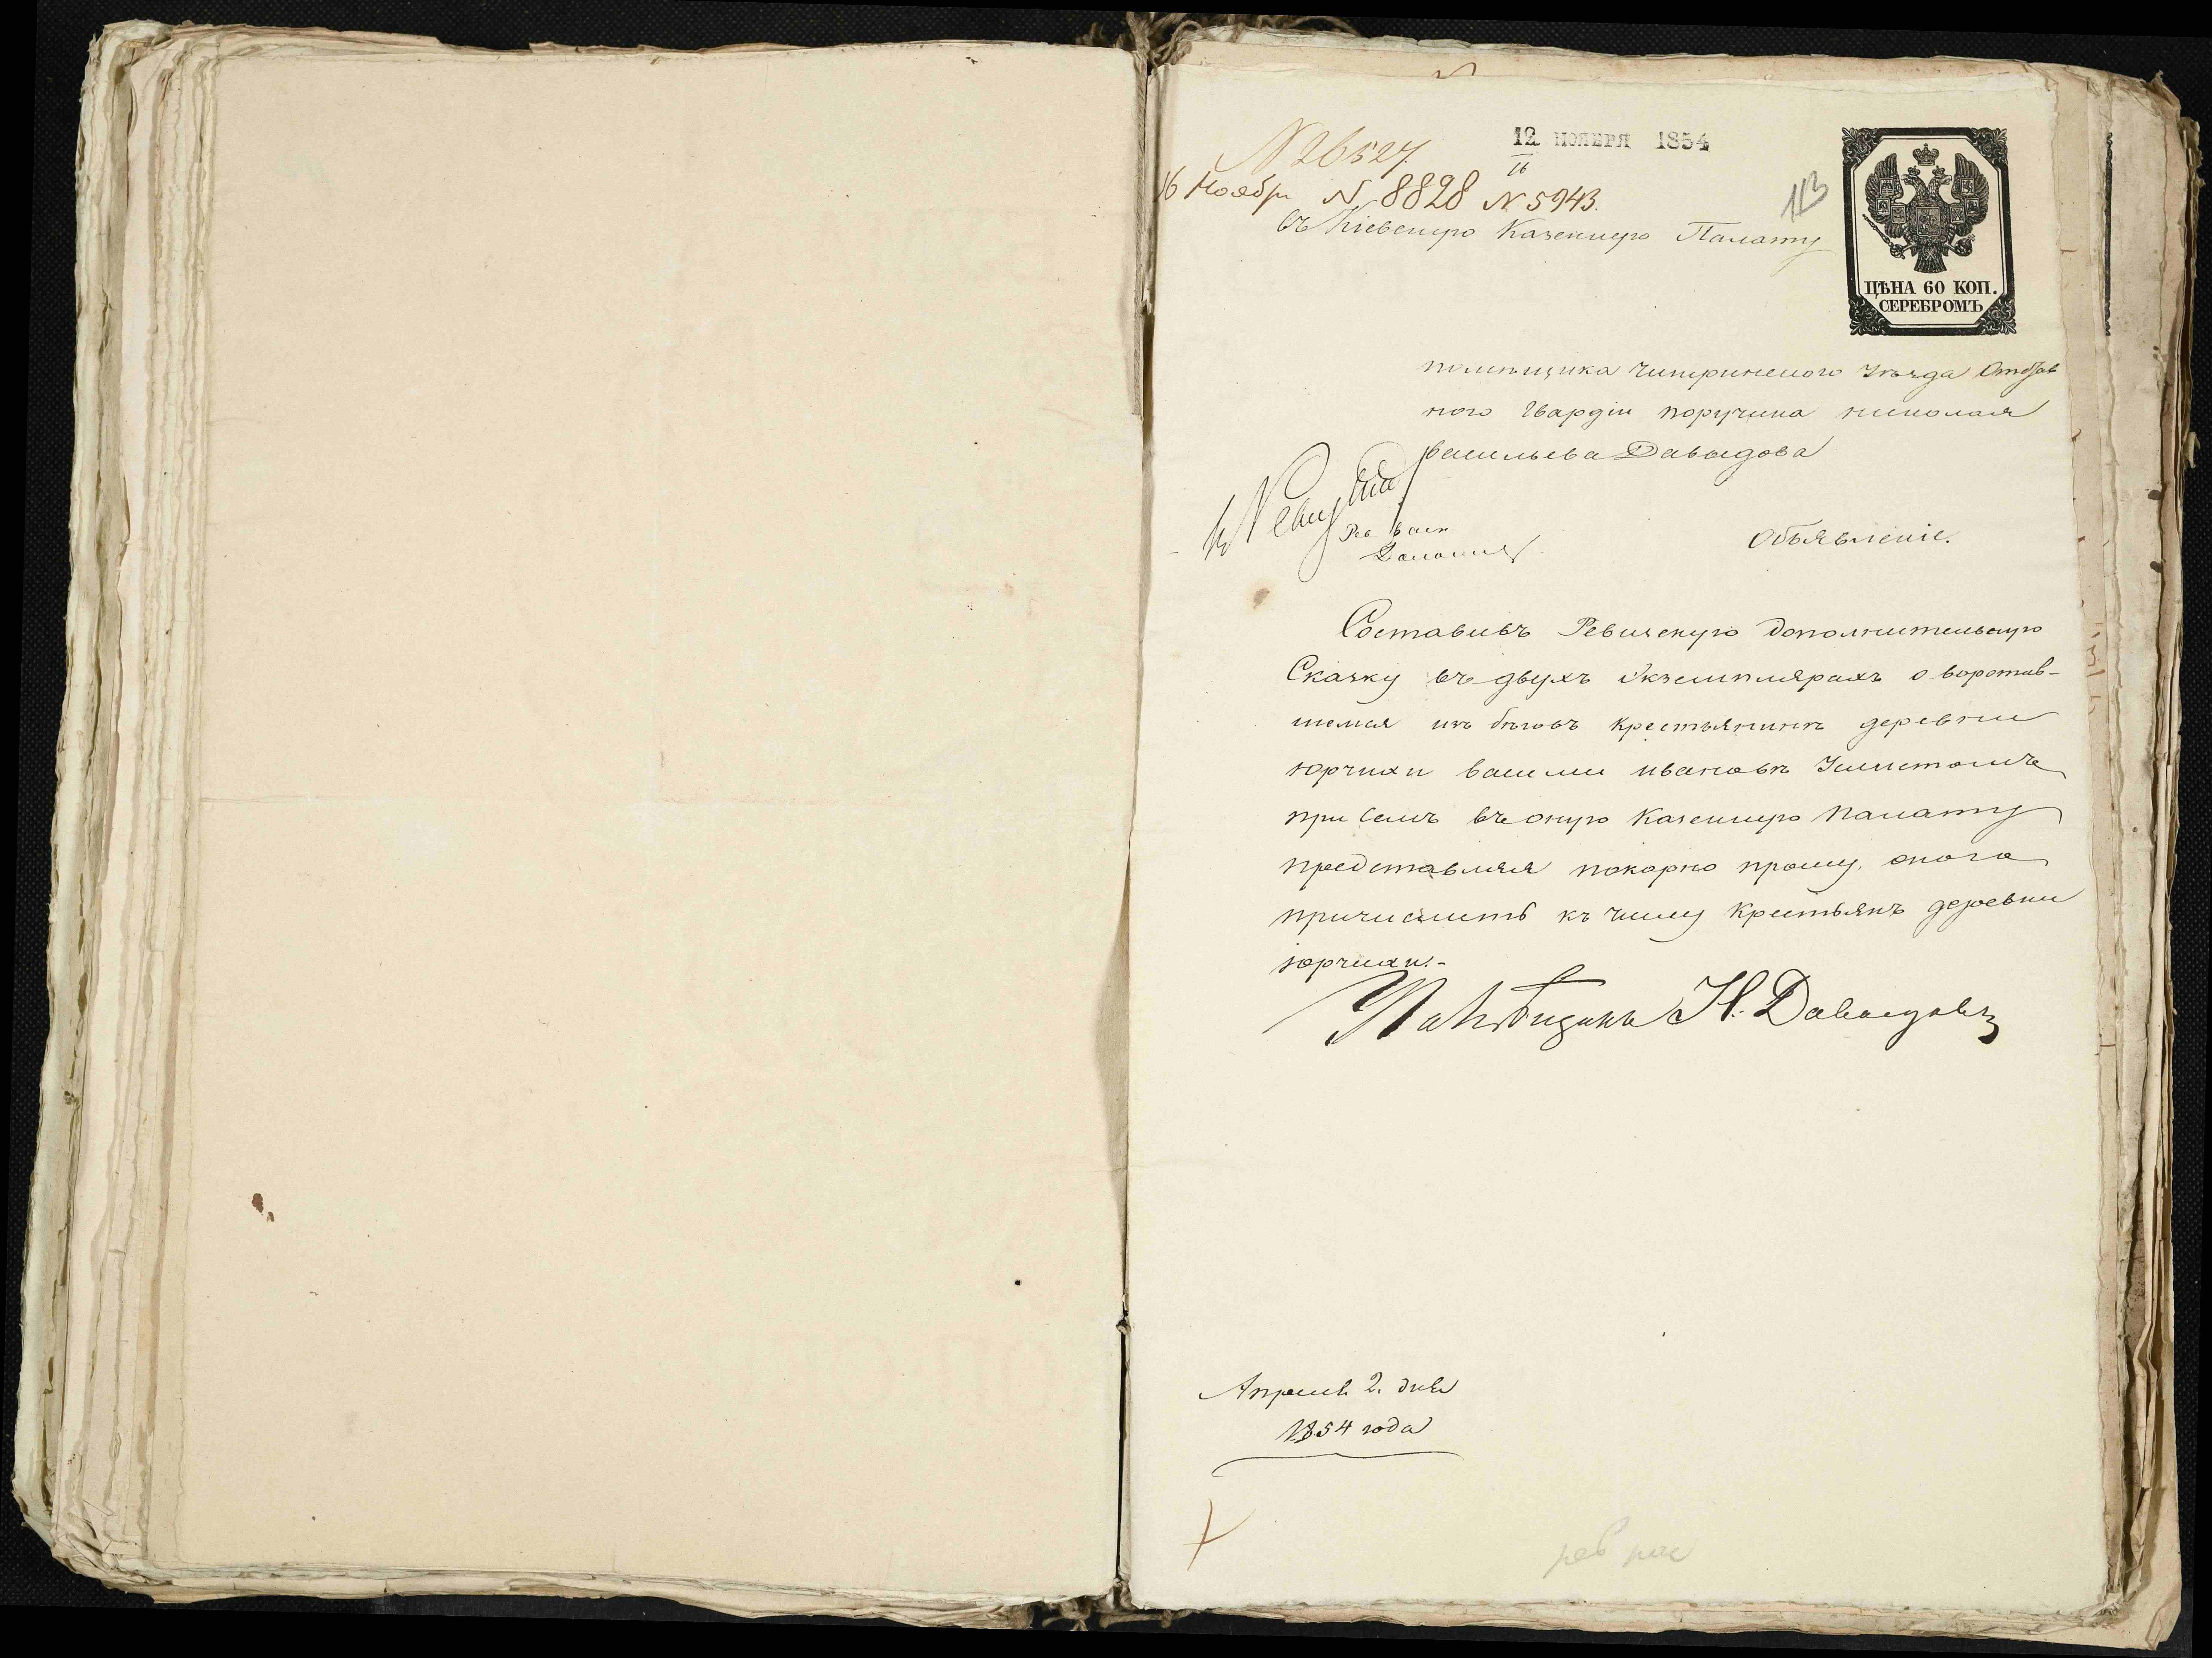 12 НОЯБРЯ 1854
16
N 26527.
16 Ноябр N 8828 N 5943.
113
Въ Кіевскую Казенную Палату
ЦѢНА 60 КОП.
СЕРЕБРОМЪ
помѣщика Чигиринского уѣзда Отстав
ного Гвардіи поручика николая
васильева Давыдова
Объявленіе.
Составивъ Ревизскую дополнительную
Сказку въ двухъ экземплярахъ о воротив-
шемся изъ бѣговъ крестьянинѣ деревни
юрчихи василии ивановѣ
при семъ въ оную казенную палату
представляя покорно прошу, оного
причислить къ числу крестьянъ деревни
юрчихи.-
Помѣщикъ Н. Давыдовъ
Апреля 2. дня
1854 года